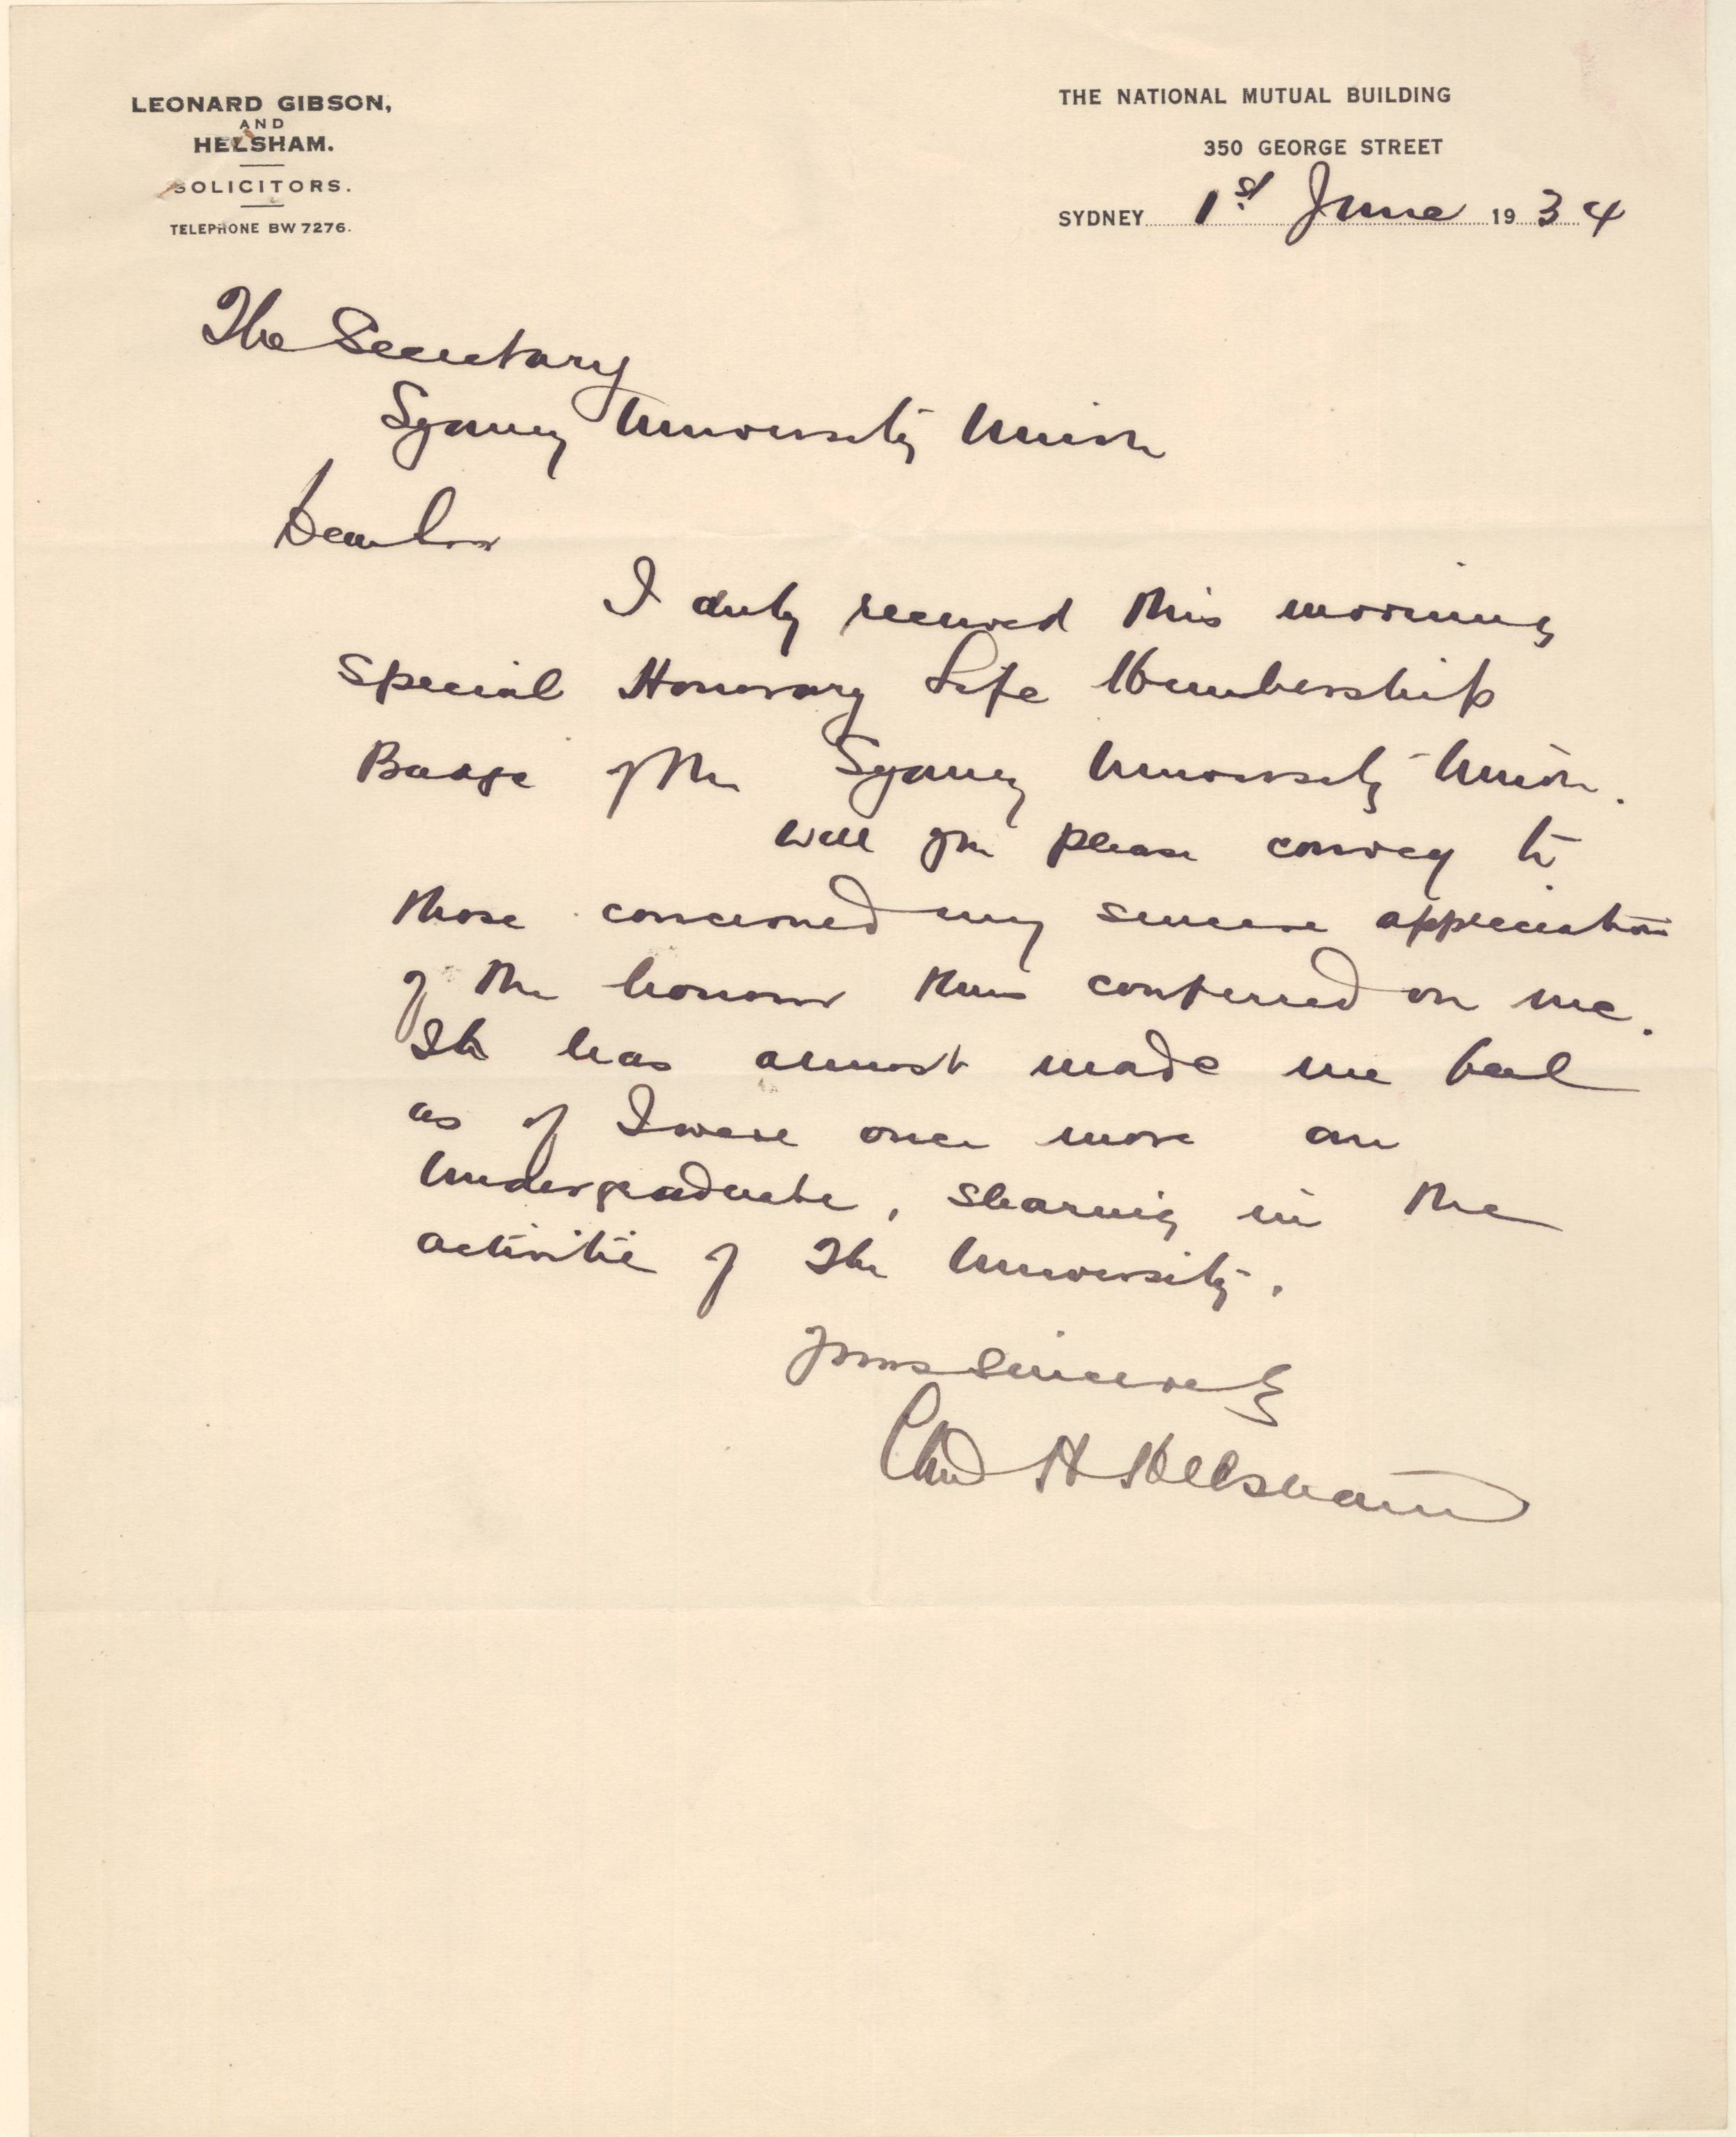 LEONARD GIBSON,
AND
HELSHAM.
SOLICITORS.
TELEPHONE BW 7276.
THE NATIONAL MUTUAL BUILDING
350 GEORGE STREET
SYDNEY 1st June 1934
The Secretary
Sydney University Union
Dear Sir
I duly received this morning
Special Honorary Life Membership
Badge of the Sydney University Union.
Will you please convey to
those concerned my sincere appreciation
of the honour thus conferred on me.
It has almost made me feel
as if I were once more an
Undergraduate, sharing in the
activities of The University.
Yours sincerely
Chas H Helsham